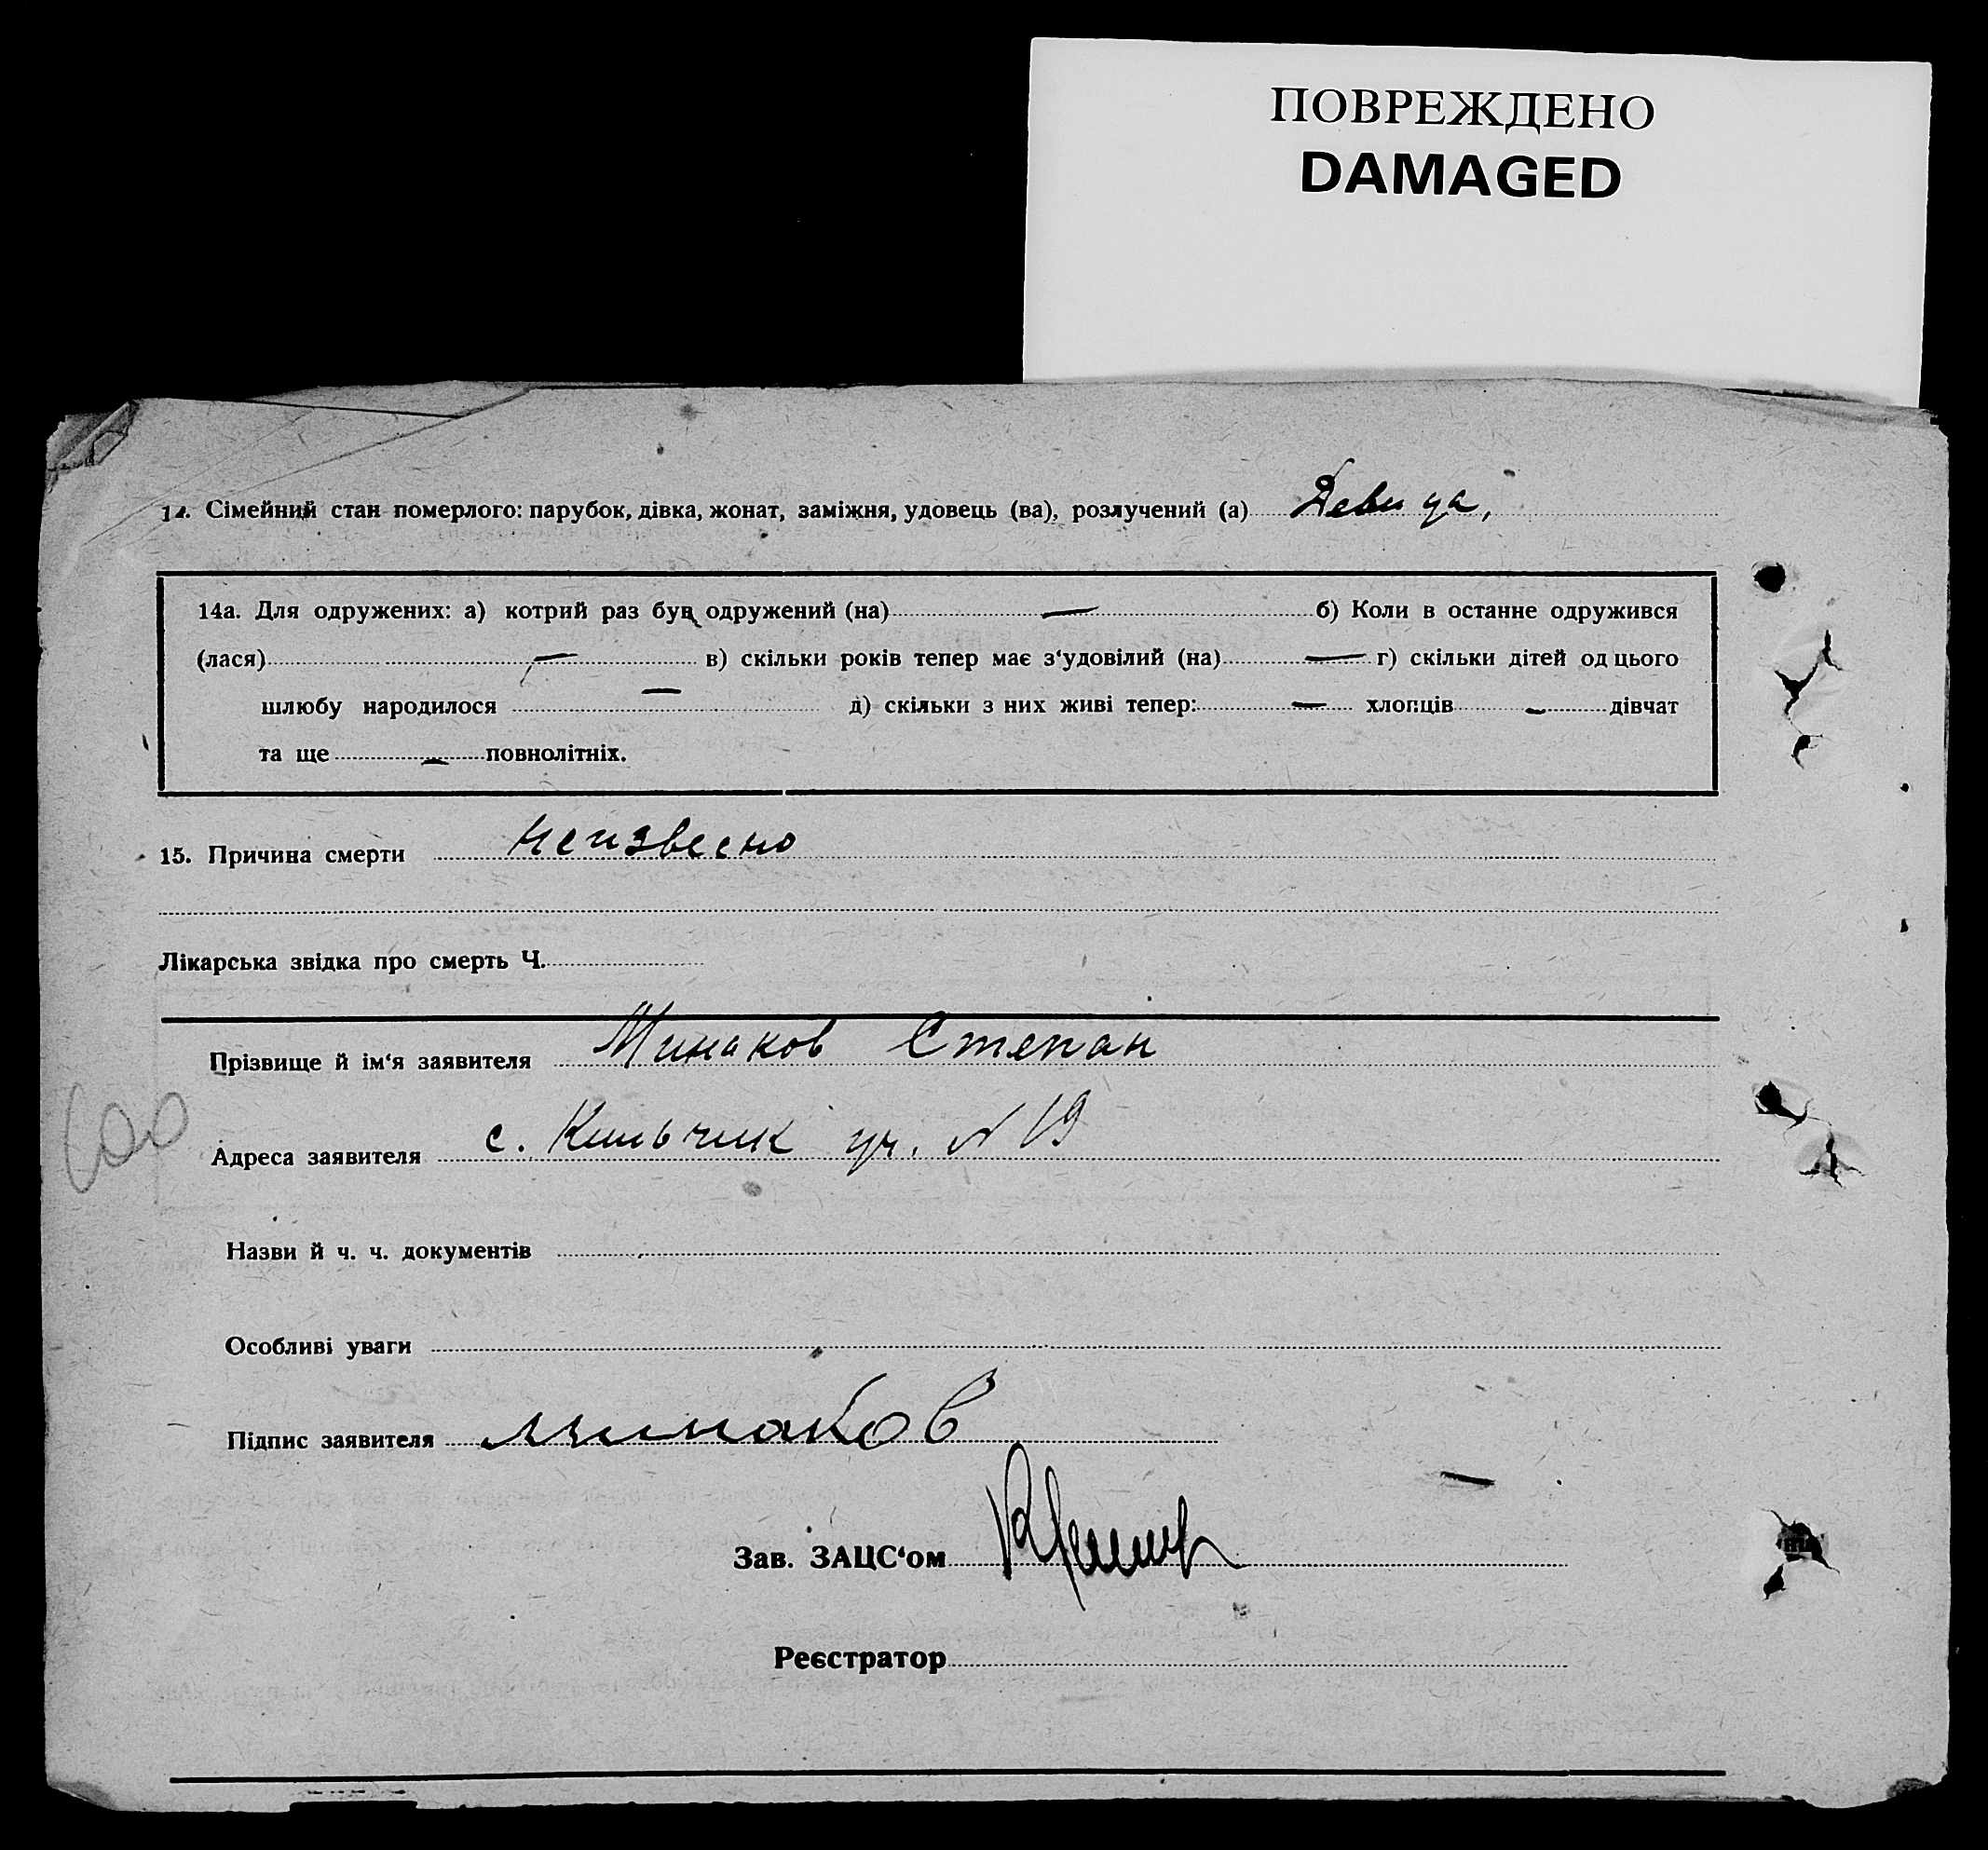 ПОВРЕЖДЕНО
DAMAGED
14. Сімейний стан померлого: парубок, дівка, жонат, заміжня, удовець (ва), розлучений (а) Девица,
14а. Для одружених: а) котрий раз був одружений (на) — б) Коли в останне одружився
(лася) — в) скільки років тепер має з‘удовілий (на) — г) скільки дітей од цього
шлюбу народилося — д) скільки з них живі тепер: — хлопців — дівчат
та ще — повнолітніх.
15. Причина смерти неизвесно
Лікарська звідка про смерть Ч.
Прізвище й ім‘я заявителя Минаков Степан
Адреса заявителя с. Кильчик уч. N 19
Назви й ч. ч. документів
Особливі уваги
Підпис заявителя Минаков
Зав. ЗАЦС‘ом
Реєстратор